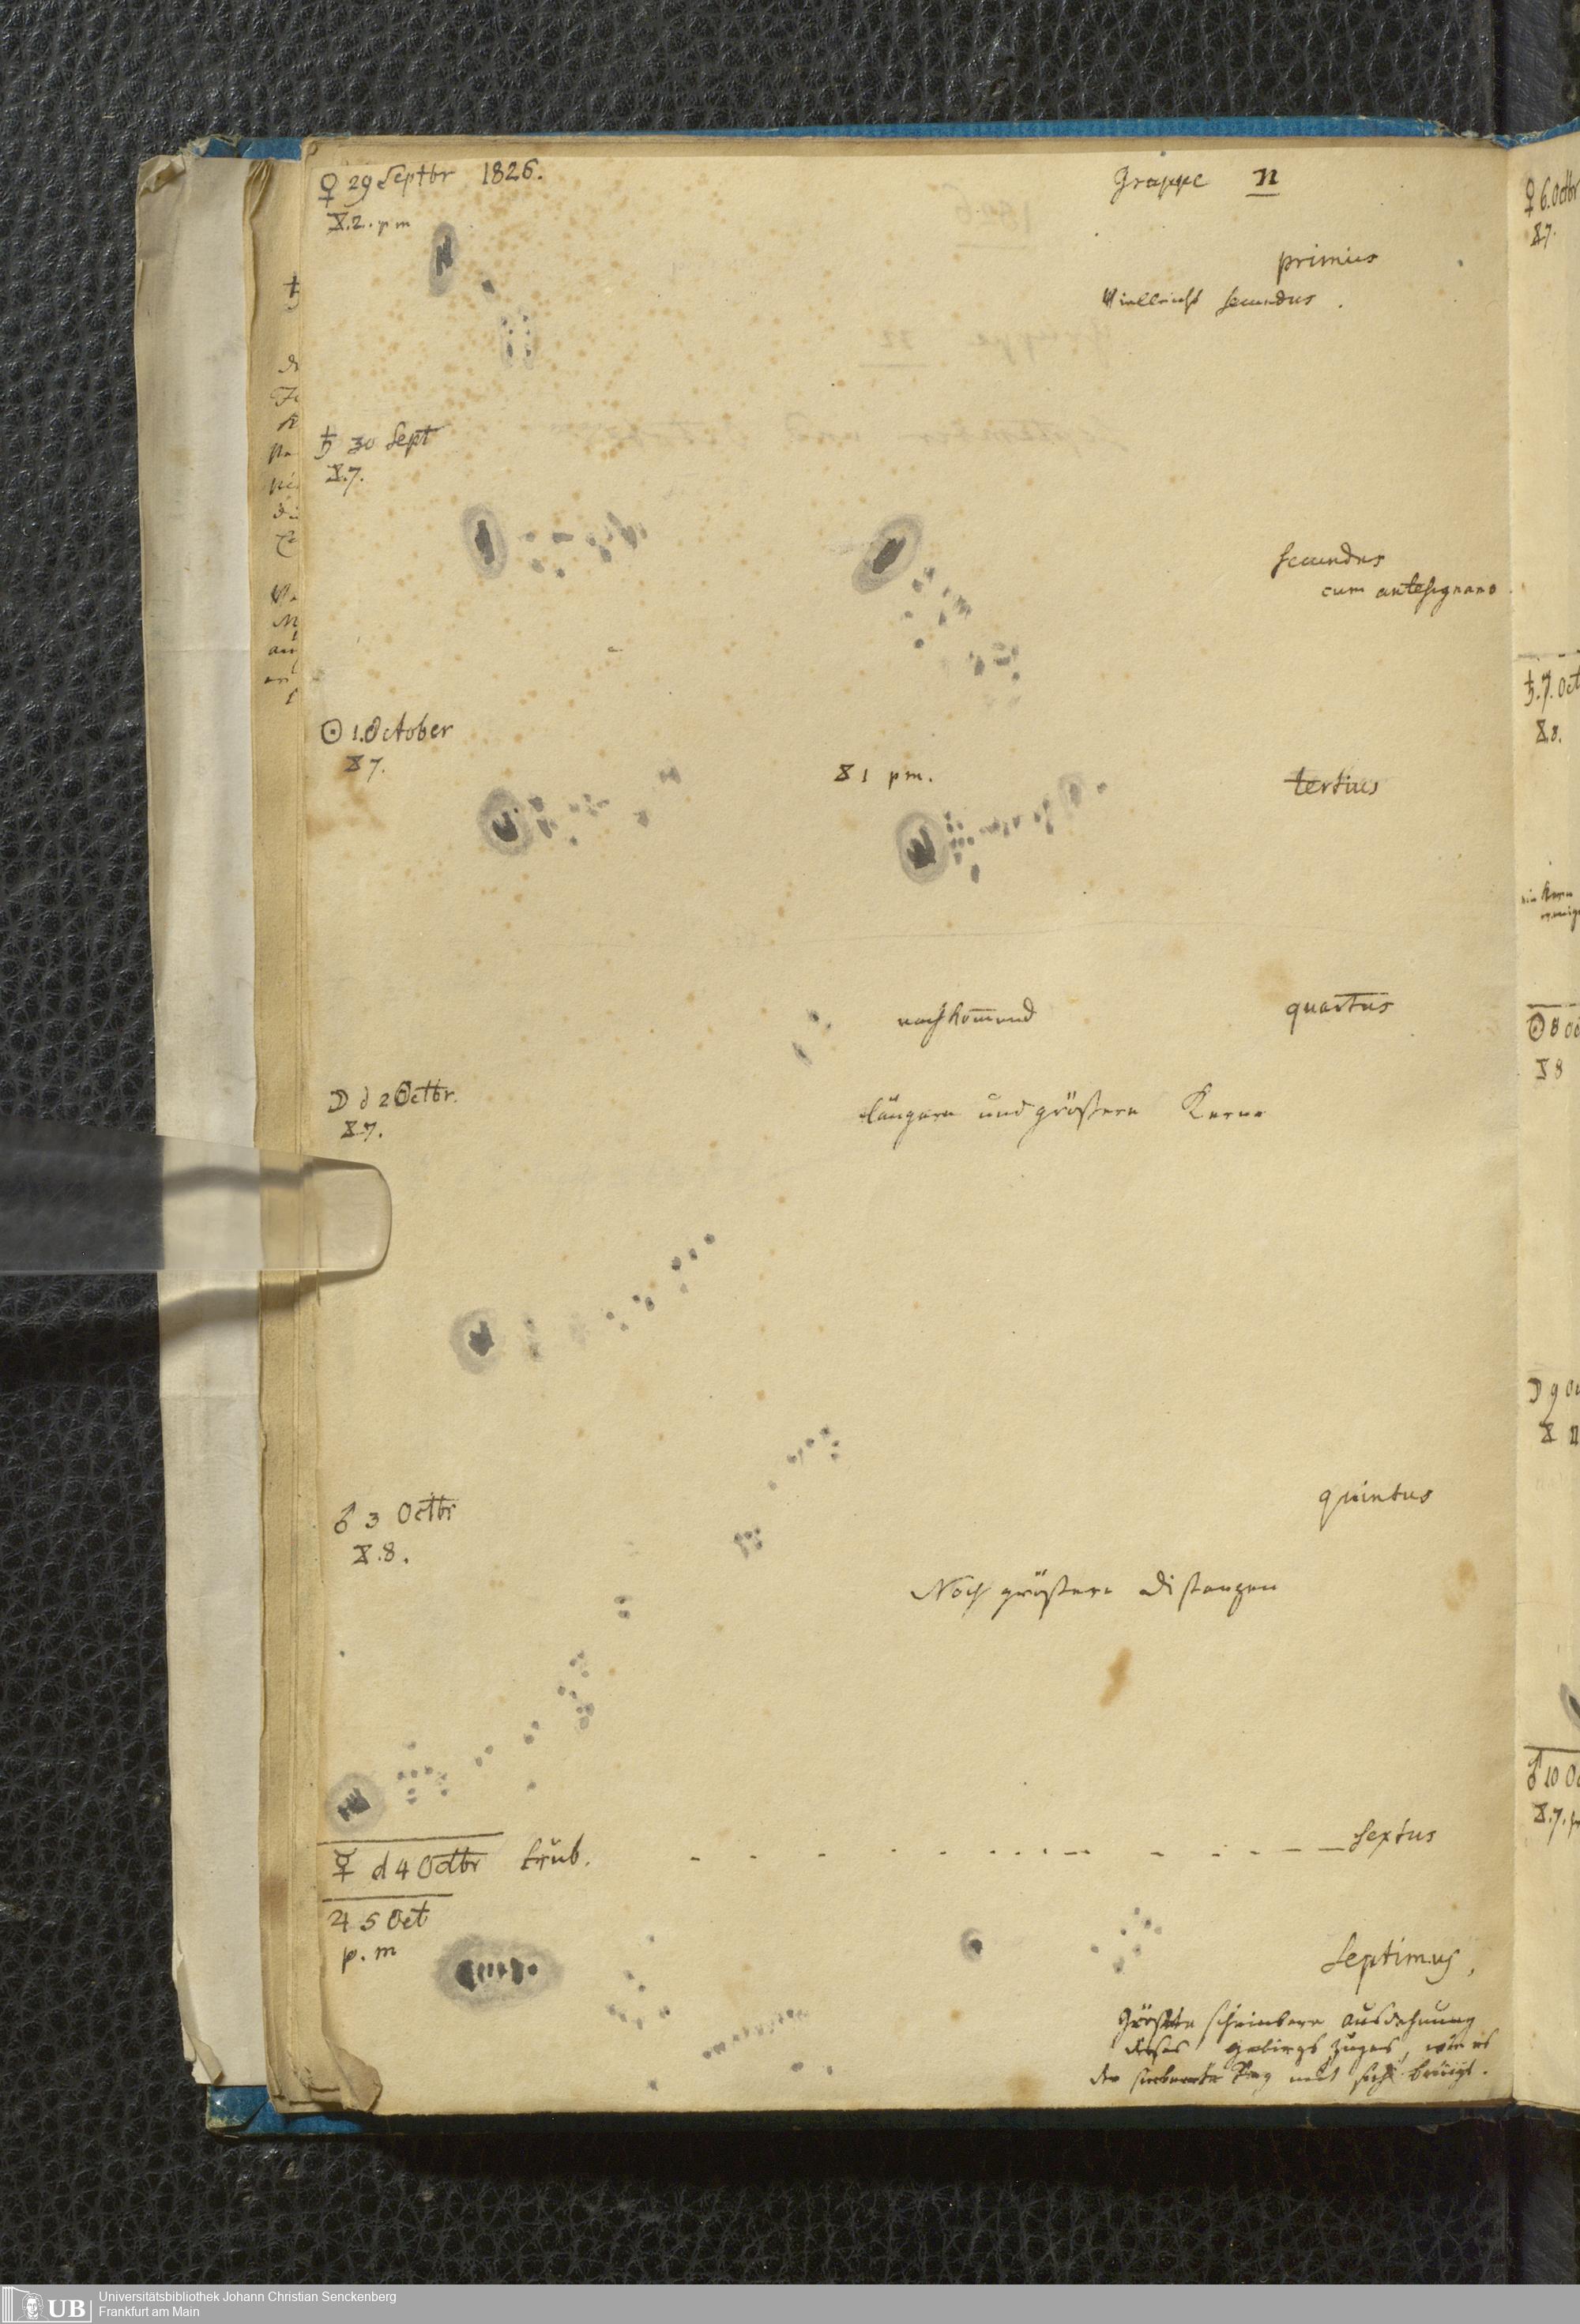 ♀ 29 Septbr 1826.
Gruppe n
X.2. pm
primus
Vielleicht secundus.
♄ 30 Sept
X.7.
secundus
cum antesignano
☉ 1. October
X 7.
X 1 pm.
tertius
nachkom̅end
quartus
☽ d 2 Octbr.
X 7.
längere und größere Kerne
♂ 3 Octbr
X.8.
quintus
Noch größere Distanzen
☿ d 4 Octbr trüb. sextus
♃ 5 Oct
p. m
Septimus,
Größte scheinbare ausdehnung
dieses gebirgs zuges, wie es
der siebente Tag mit sich bringt.
♀ 6. Octbr
X7.
♄. 7. Oct
X.8.
☉ 8 Oc
X 8
☽ 9 Oc
♂ 10 Oc
X.7.
Universitätsbibliothek Johann Christian Senckenberg
Frankfurt am Main
UB